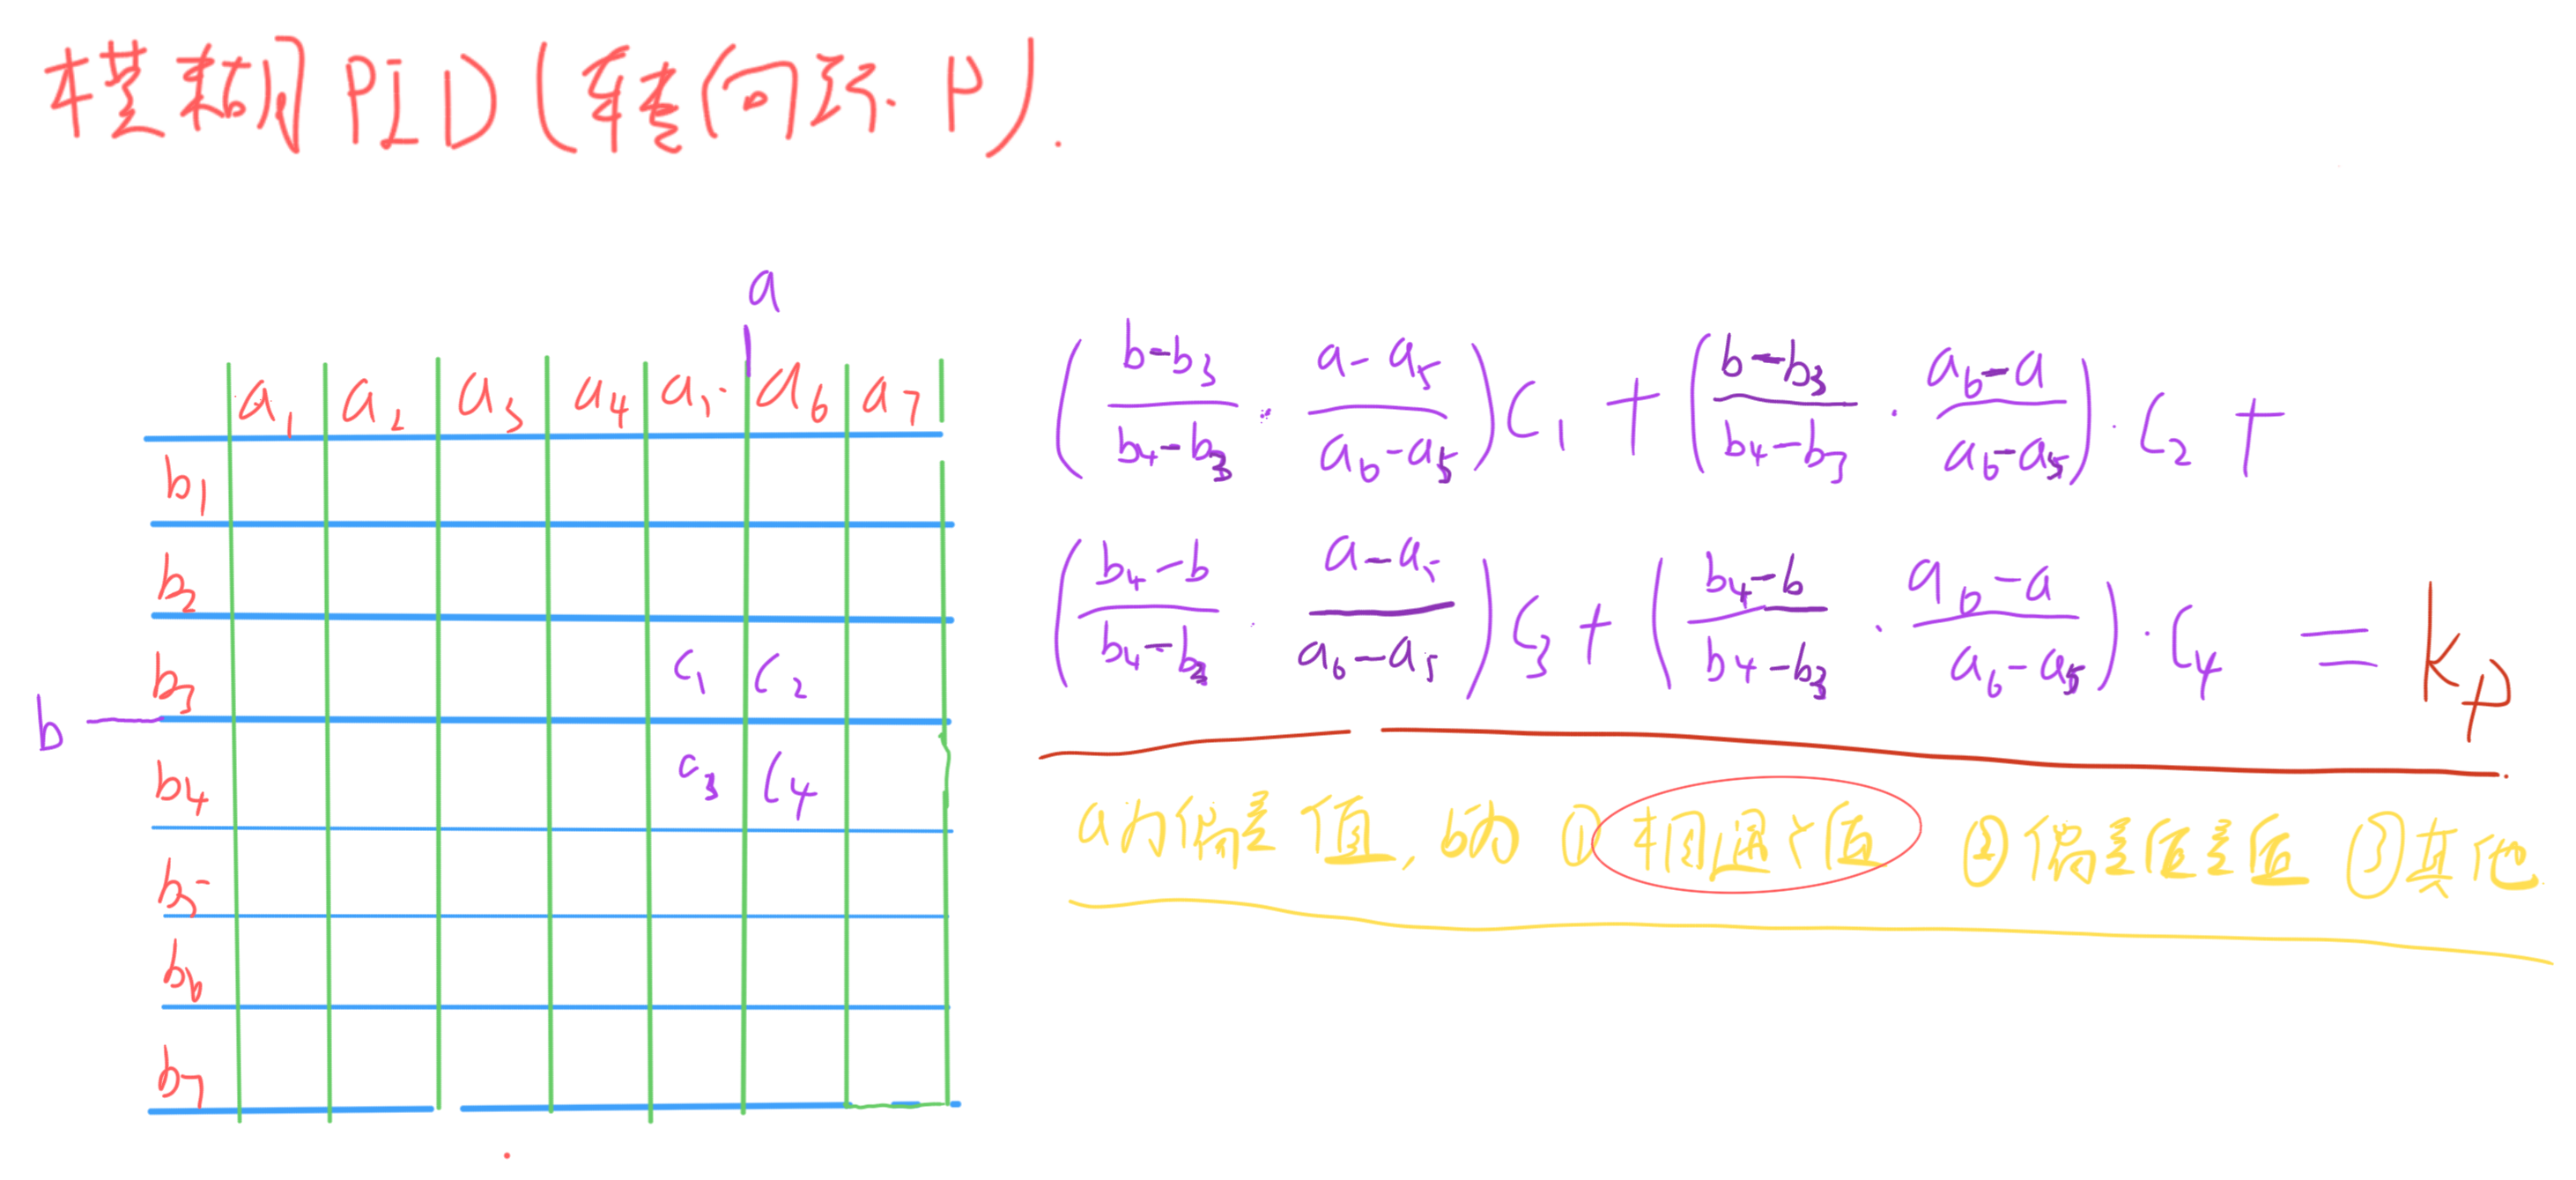 模糊PID(转向环.P).
a
a₁ a₂ a₃ a₄ a₅ a₆ a₇
b₁
b₂
b₃ c₁ c₂
b
b₄ c₃ c₄
b₅
b₆
b₇
((b-b₃)/(b₄-b₃) · (a-a₅)/(a₆-a₅))c₁ + ((b-b₃)/(b₄-b₃) · (a₆-a)/(a₆-a₅))·c₂ +
((b₄-b)/(b₄-b₃) · (a-a₅)/(a₆-a₅))c₃ + ((b₄-b)/(b₄-b₃) · (a₆-a)/(a₆-a₅))·c₄ = kp
a为偏差值, b为 ① 值 ②偏差值差值 ③其他